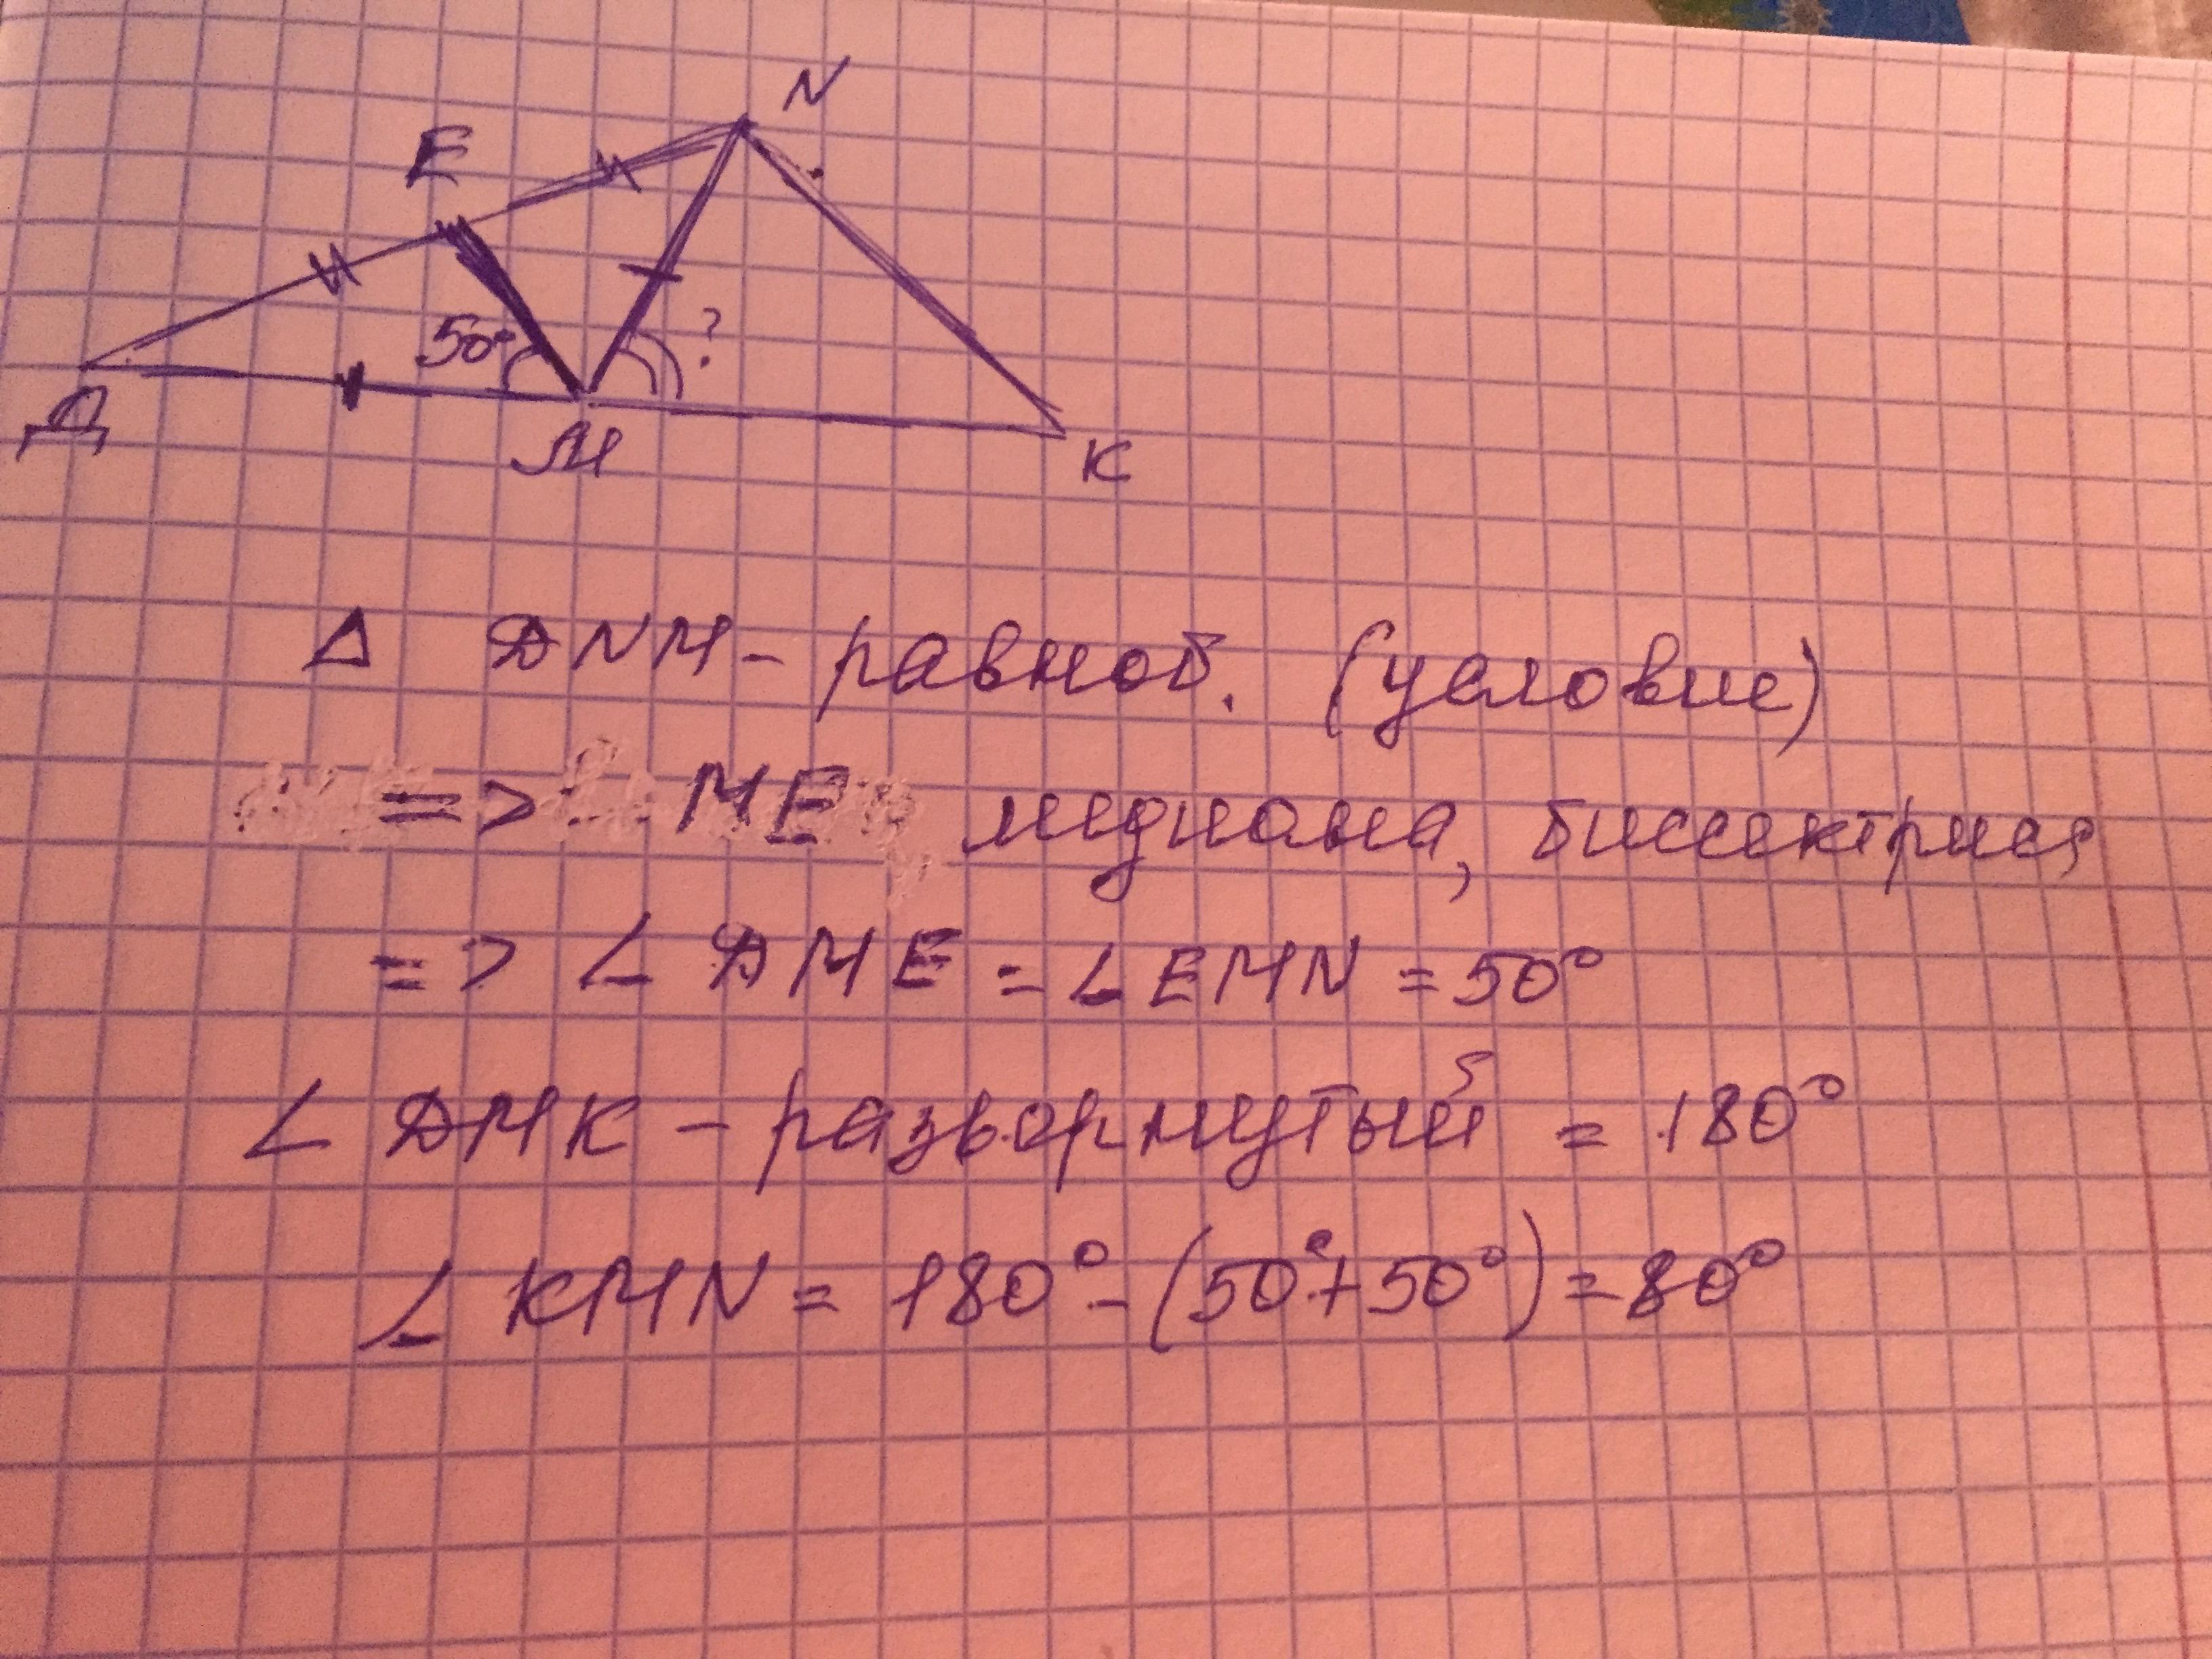 N
E
50°
?
Д
М
К
Δ DNM - равноб. (условие)
=> ME медиана, биссектриса
=> ∠ DME = ∠ EMN = 50°
∠ DMK - развернутый = 180°
∠ KMN = 180° - (50° + 50°) = 80°